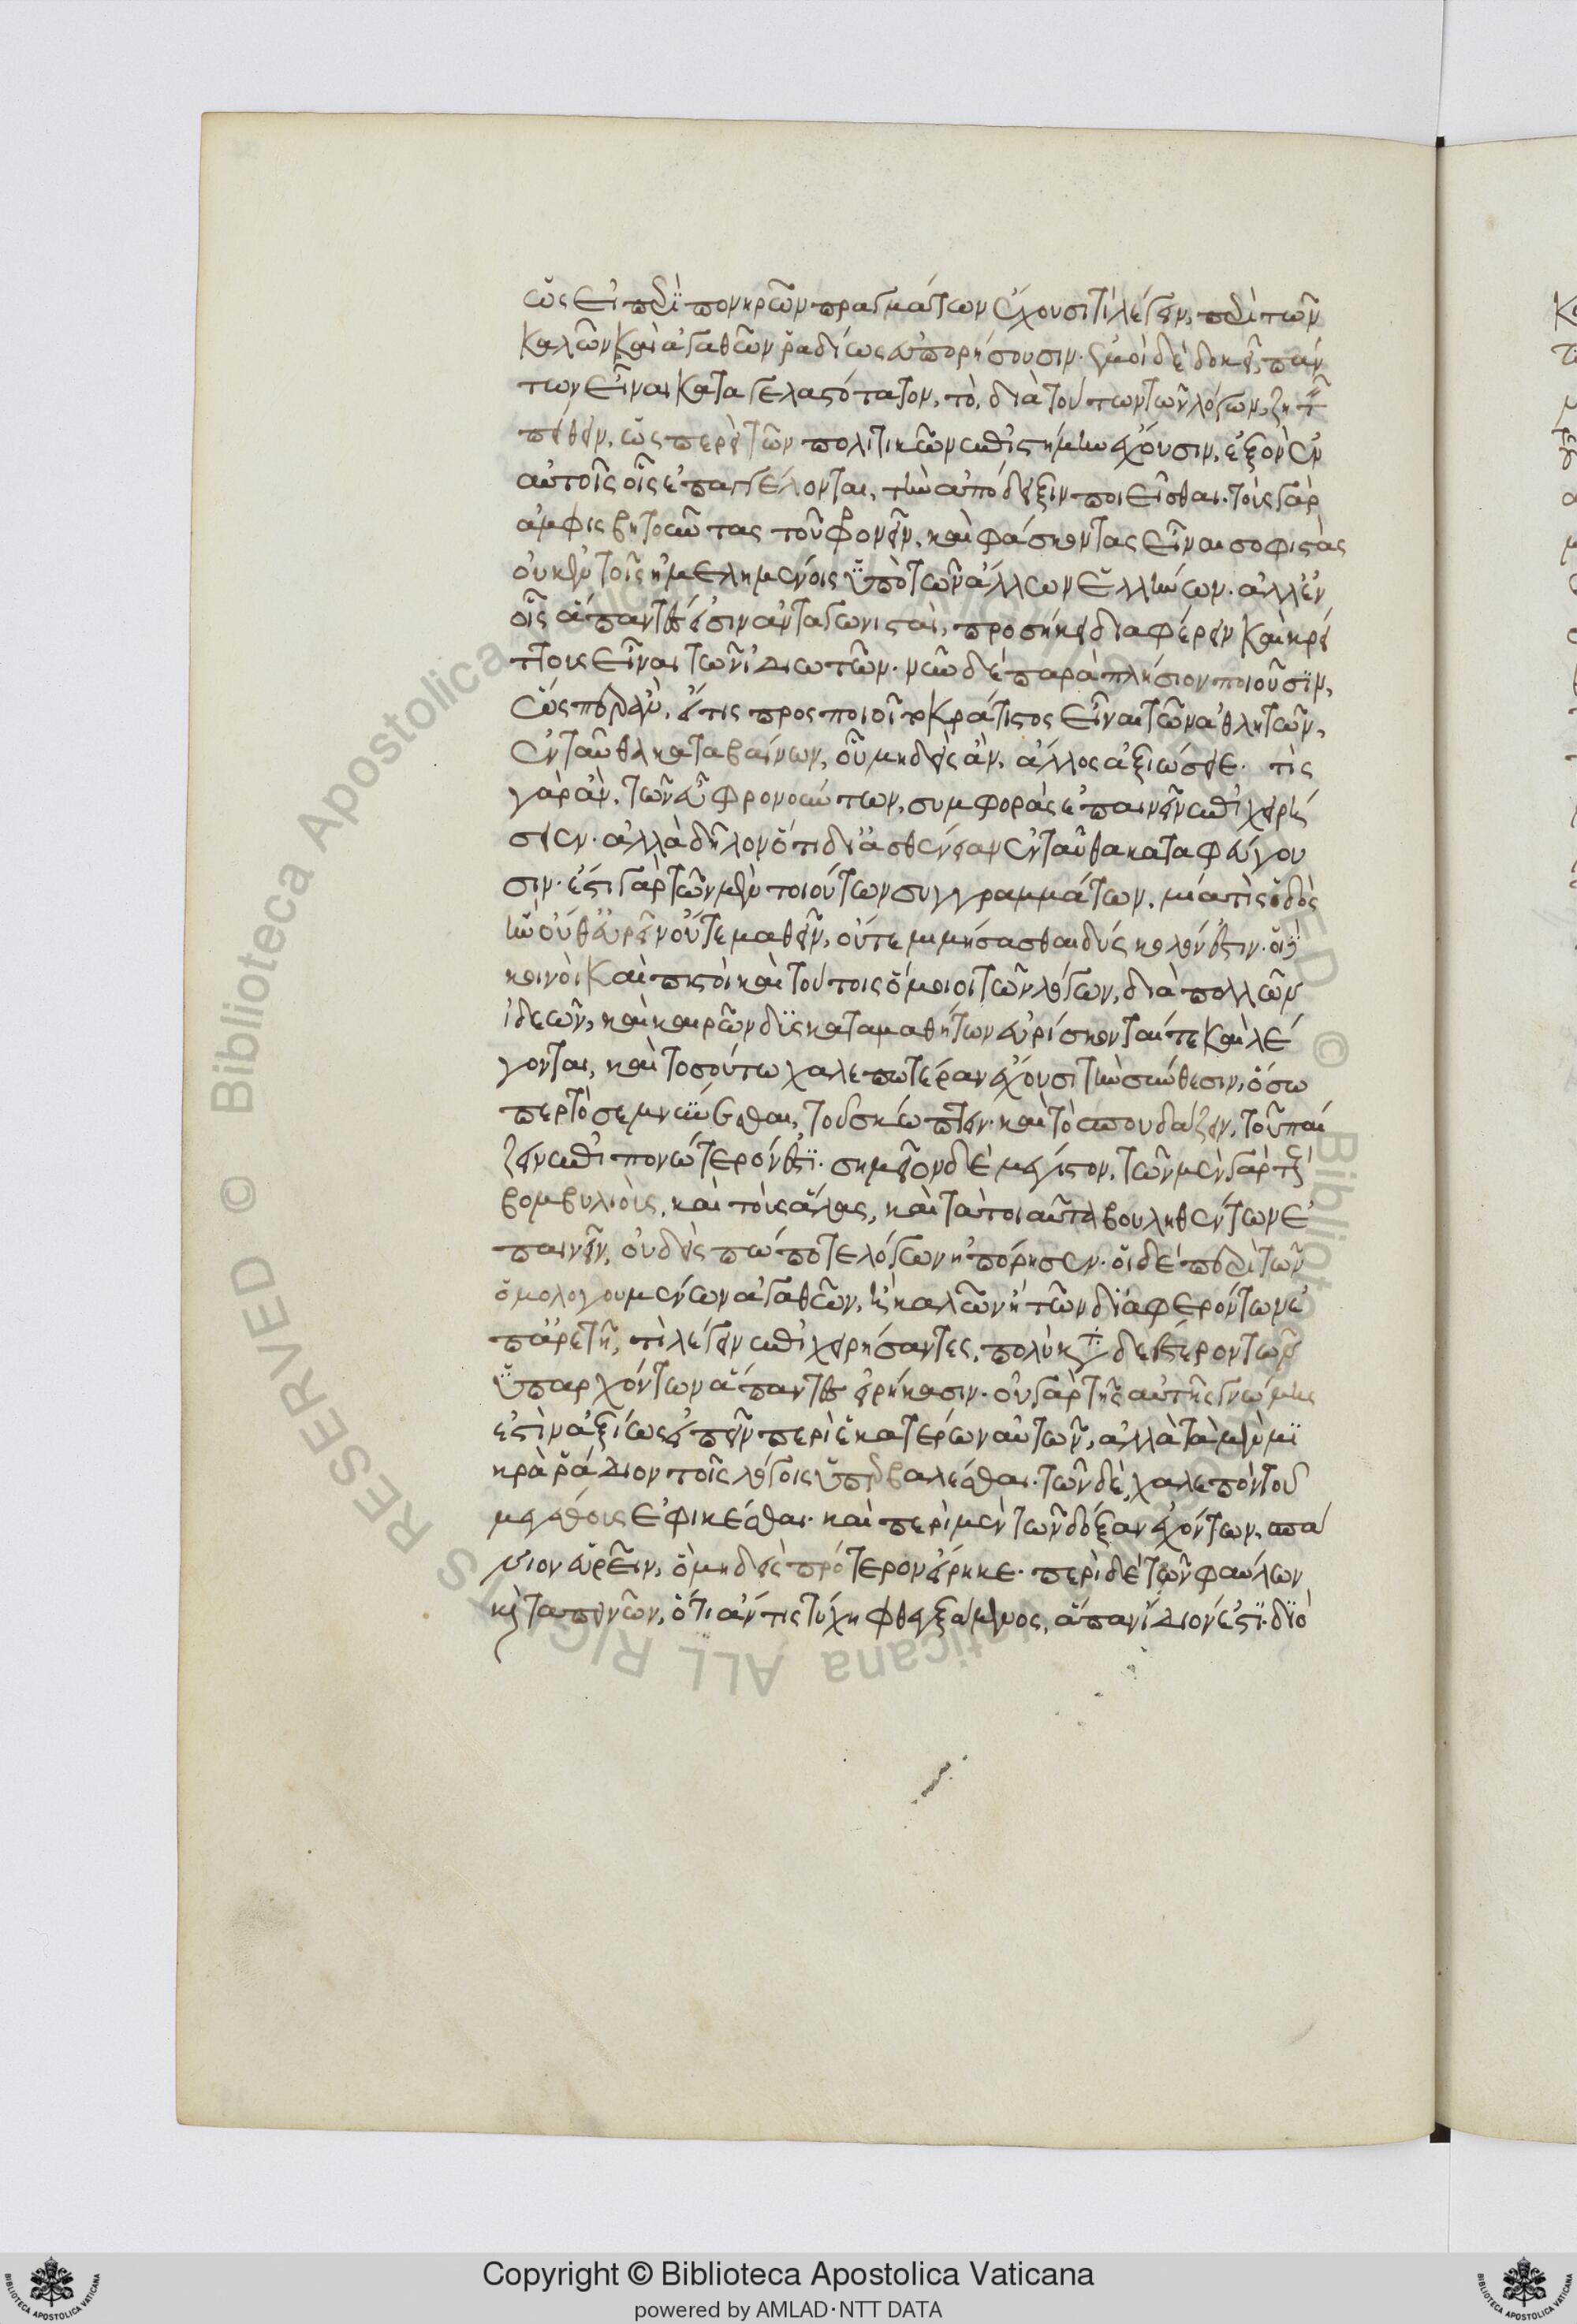 ὡς εἰ περὶ πονηρῶν πραγμάτων ἔχουσί τι λέγειν, περὶ τῶν
καλῶν καὶ ἀγαθῶν ῥαδίως εὐπορήσουσιν. ἐμοὶ δὲ δοκεῖ, πάν
των εἶναι καταγελαστότατον, τὸ, διὰ τούτων τῶν λόγων, ζητεῖν
πείθειν, ὡς περὶ τῶν πολιτικῶν ἐπιστήμην ἔχουσιν, ἐξὸν ἐν
αὐτοῖς οἷς ἐπαγγέλονται, τὴν ἀπόδειξιν ποιεῖσθαι. τοὺς γὰρ
ἀμφισβητοῦντας τοῦ φρονεῖν, καὶ φάσκοντας εἶναι σοφιστὰς
οὐκ ἐν τοῖς ἠμελημένοις ὑπὸ τῶν ἄλλων ἑλλήνων. ἀλλ' ἐν
οἷς ἅπαντές εἰσιν ἀνταγωνισταὶ, προσήκει διαφέρειν καὶ κρεί
ττους εἶναι τῶν ἰδιωτῶν. νῦν δὲ παραπλήσιον ποιοῦσιν,
ὥσπερ ἂν, εἴ τις προσποιοῖτο κράτιστος εἶναι τῶν ἀθλητῶν,
ἐνταῦθα καταβαίνων, οὗ μηδεὶς ἂν, ἄλλος ἀξιώσειε. τίς
γὰρ ἂν, τῶν εὖ φρονούντων, συμφορὰς ἐπαινεῖν ἐπιχειρή
σειεν. ἀλλὰ δῆλον ὅτι δι' ἀσθένειαν ἐνταῦθα καταφεύγου
σιν. ἔστι γὰρ τῶν μὲν τοιούτων συγγραμμάτων, μία τὶς ὁδὸς
ἣν οὔθ' εὑρεῖν οὔτε μαθεῖν, οὔτε μιμήσασθαι δύσκολόν ἐστιν. οἱ δὲ
κοινοὶ καὶ πιστοὶ καὶ τούτοις ὅμοιοι τῶν λόγων, διὰ πολλῶν
ἰδεῶν, καὶ καιρῶν δυσκαταμαθήτων εὑρίσκονταί τε καὶ λέ
γονται, καὶ τοσούτω χαλεπωτέραν ἔχουσι τὴν σύνθεσιν, ὅσω
περ τὸ σεμνύνεσθαι, τοῦ σκώπτειν. καὶ τὸ σπουδάζειν, τοῦ παί
ζειν ἐπιπονώτερόν ἐστι. σημεῖον δὲ μέγιστον, τῶν μὲν γὰρ τοὺς
βομβυλιοὺς, καὶ τοὺς ἅλας, καὶ τὰ τοιαῦτα βουληθέντων ἐ
παινεῖν, οὐδεὶς πώποτε λόγων ἠπόρησεν. οἱ δὲ περὶ τῶν
ὁμολογουμένων ἀγαθῶν, ἢ καλῶν ἢ τῶν διαφερόντων ἐ
π' ἀρετῆ, τὶ λέγειν ἐπιχειρήσαντες, πολὺ καταδεέστερον τῶν
ὑπαρχόντων ἅπαντες εἰρήκασιν. οὐ γὰρ τῆς αὐτῆς γνώμης
ἐστὶν ἀξίως εἰπεῖν περὶ ἑκατέρων αὐτῶν, ἀλλὰ τὰ μὲν μι
κρὰ ῥάδιον τοῖς λόγοις ὑπερβαλέσθαι. τῶν δὲ, χαλεπὸν τοῦ
μεγέθους ἐφικέσθαι. καὶ περὶ μὲν τῶν δόξαν ἐχόντων, σπά
νιον εὑρεῖν, ὃ μηδεὶς πρότερον εἴρηκε. περὶ δὲ τῶν φαύλων
καὶ ταπεινῶν, ὅτι ἄν τις τύχη φθεγξάμενος, ἅπαν ἴδιόν ἐστι. διὸ
Copyright © Biblioteca Apostolica Vaticana
powered by AMLAD·NTT DATA